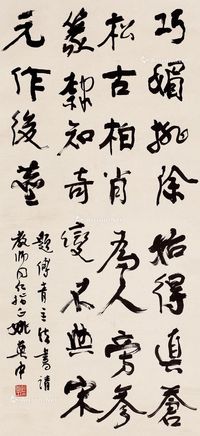 巧媚排除始得真蒼
松古柏肖為人旁參
篆隸知奇變不與宋
元作後塵
題傅青主法書請
教師同仁指正姚奠中